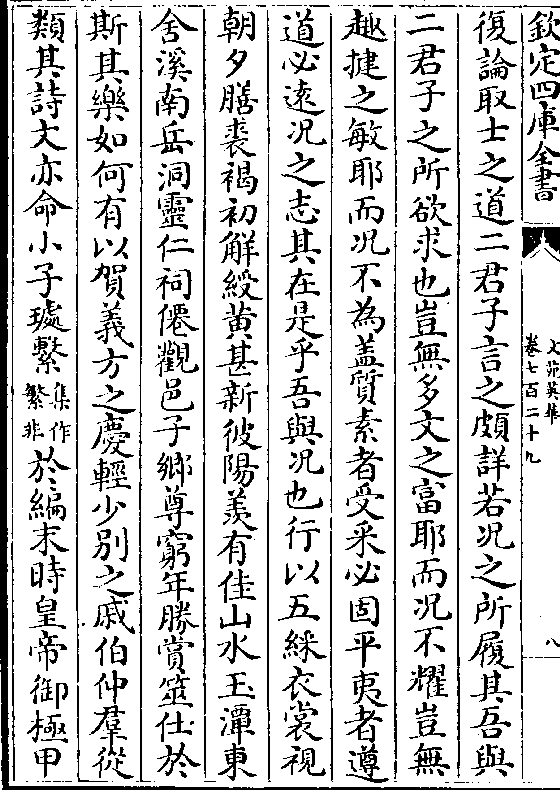 欽定四庫全書
文苑英華
卷七百二十九
八
復論取士之道二君子言之頗詳若況之所履其吾與
二君子之所欲求也豈無多文之富耶而況不耀豈無
趣捷之敏耶而況不為蓋質素者受采必固平夷者遵
道必逺况之志其在是乎吾與况也行以五綵衣裳視
朝夕膳裘褐初解綬黄甚新彼陽羨有佳山水玉潭東
舍溪南岳洞靈仁祠僊觀邑子鄉尊窮年勝賞筮仕於
斯其樂如何有以賀義方之慶輕少別之戚伯仲羣從
類其詩文亦命小子璩繫集作繁非於編末時皇帝御極甲